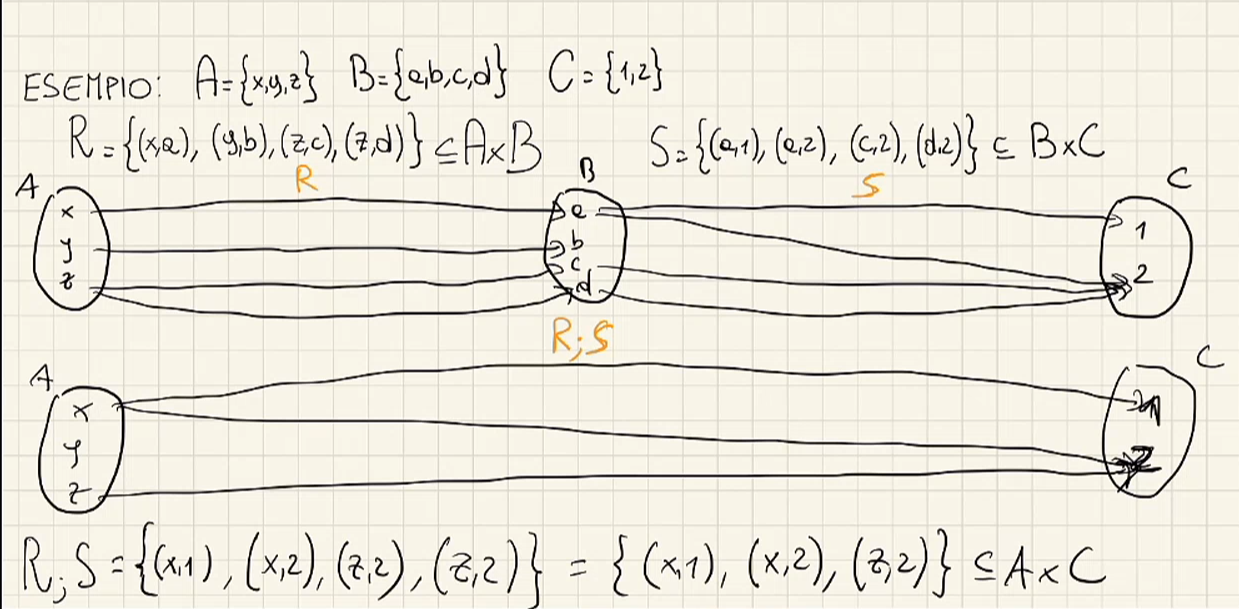 ESEMPIO: A={x,y,z} B={a,b,c,d} C={1,2}
R={(x,a), (y,b), (z,c), (z,d)} ⊆ A×B S={(a,1), (a,2), (c,2), (d,2)} ⊆ B×C
A R B S C
x a 1
y b
z c 2
d
R;S
A C
x 1
y
z 2
R;S = {(x,1), (x,2), (z,2), (z,2)} = {(x,1), (x,2), (z,2)} ⊆ A×C